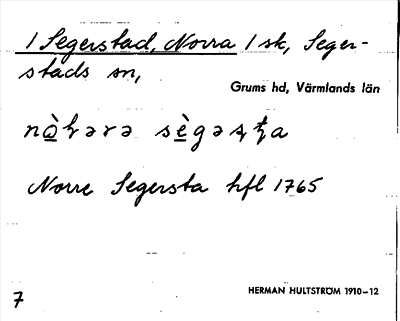 1 Segerstad, Norra 1 sk, Seger-
stads sn,
Grums hd, Värmlands län
Norre Segersta hfl 1765
HERMAN HULTSTRÖM 1910-12
7